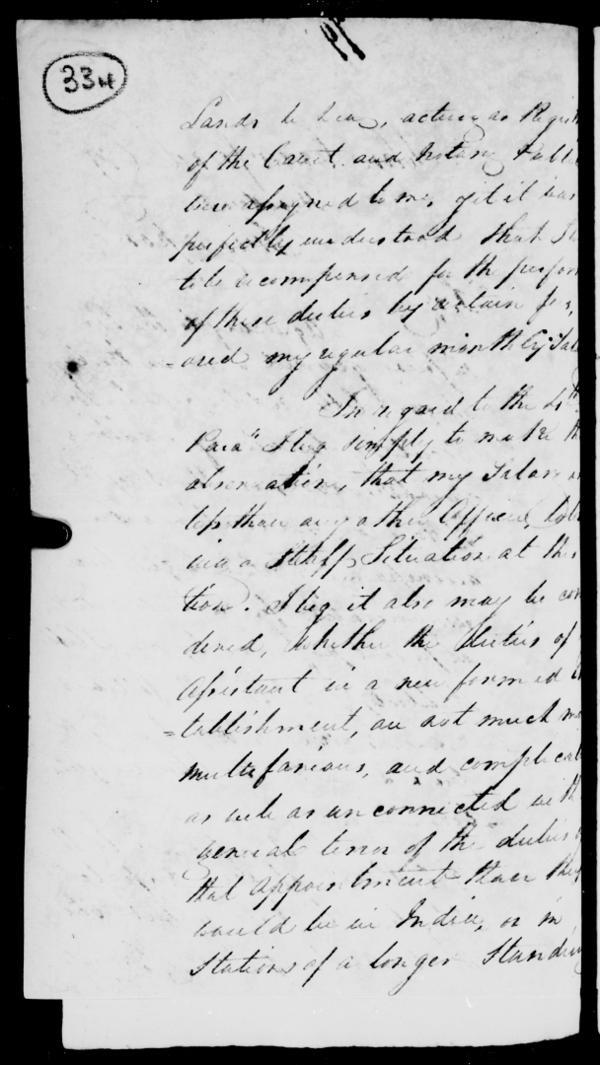 334
Lands to &c, acting as Regist
of the Court and Notary Publi
were assigned to me, yet it was
perfectly understood that I
to be recompensed for the perfor
of these duties by certain fees,
and my regular monthly Sal
In regard to the 4th
Para I beg simply to make th
observation, that my Salary is
less than any other Officer, hold
ing a Staff Situation at this
tion. I beg it also may be con
dered, whether the Duties of
Assistant in a new formed E
=tablishment, are not much mo
multifarious, and complicat
as well as unconnected with
general tenor of the duties o
that appointment than they
would be in India, or in
Stations of a longer Standing